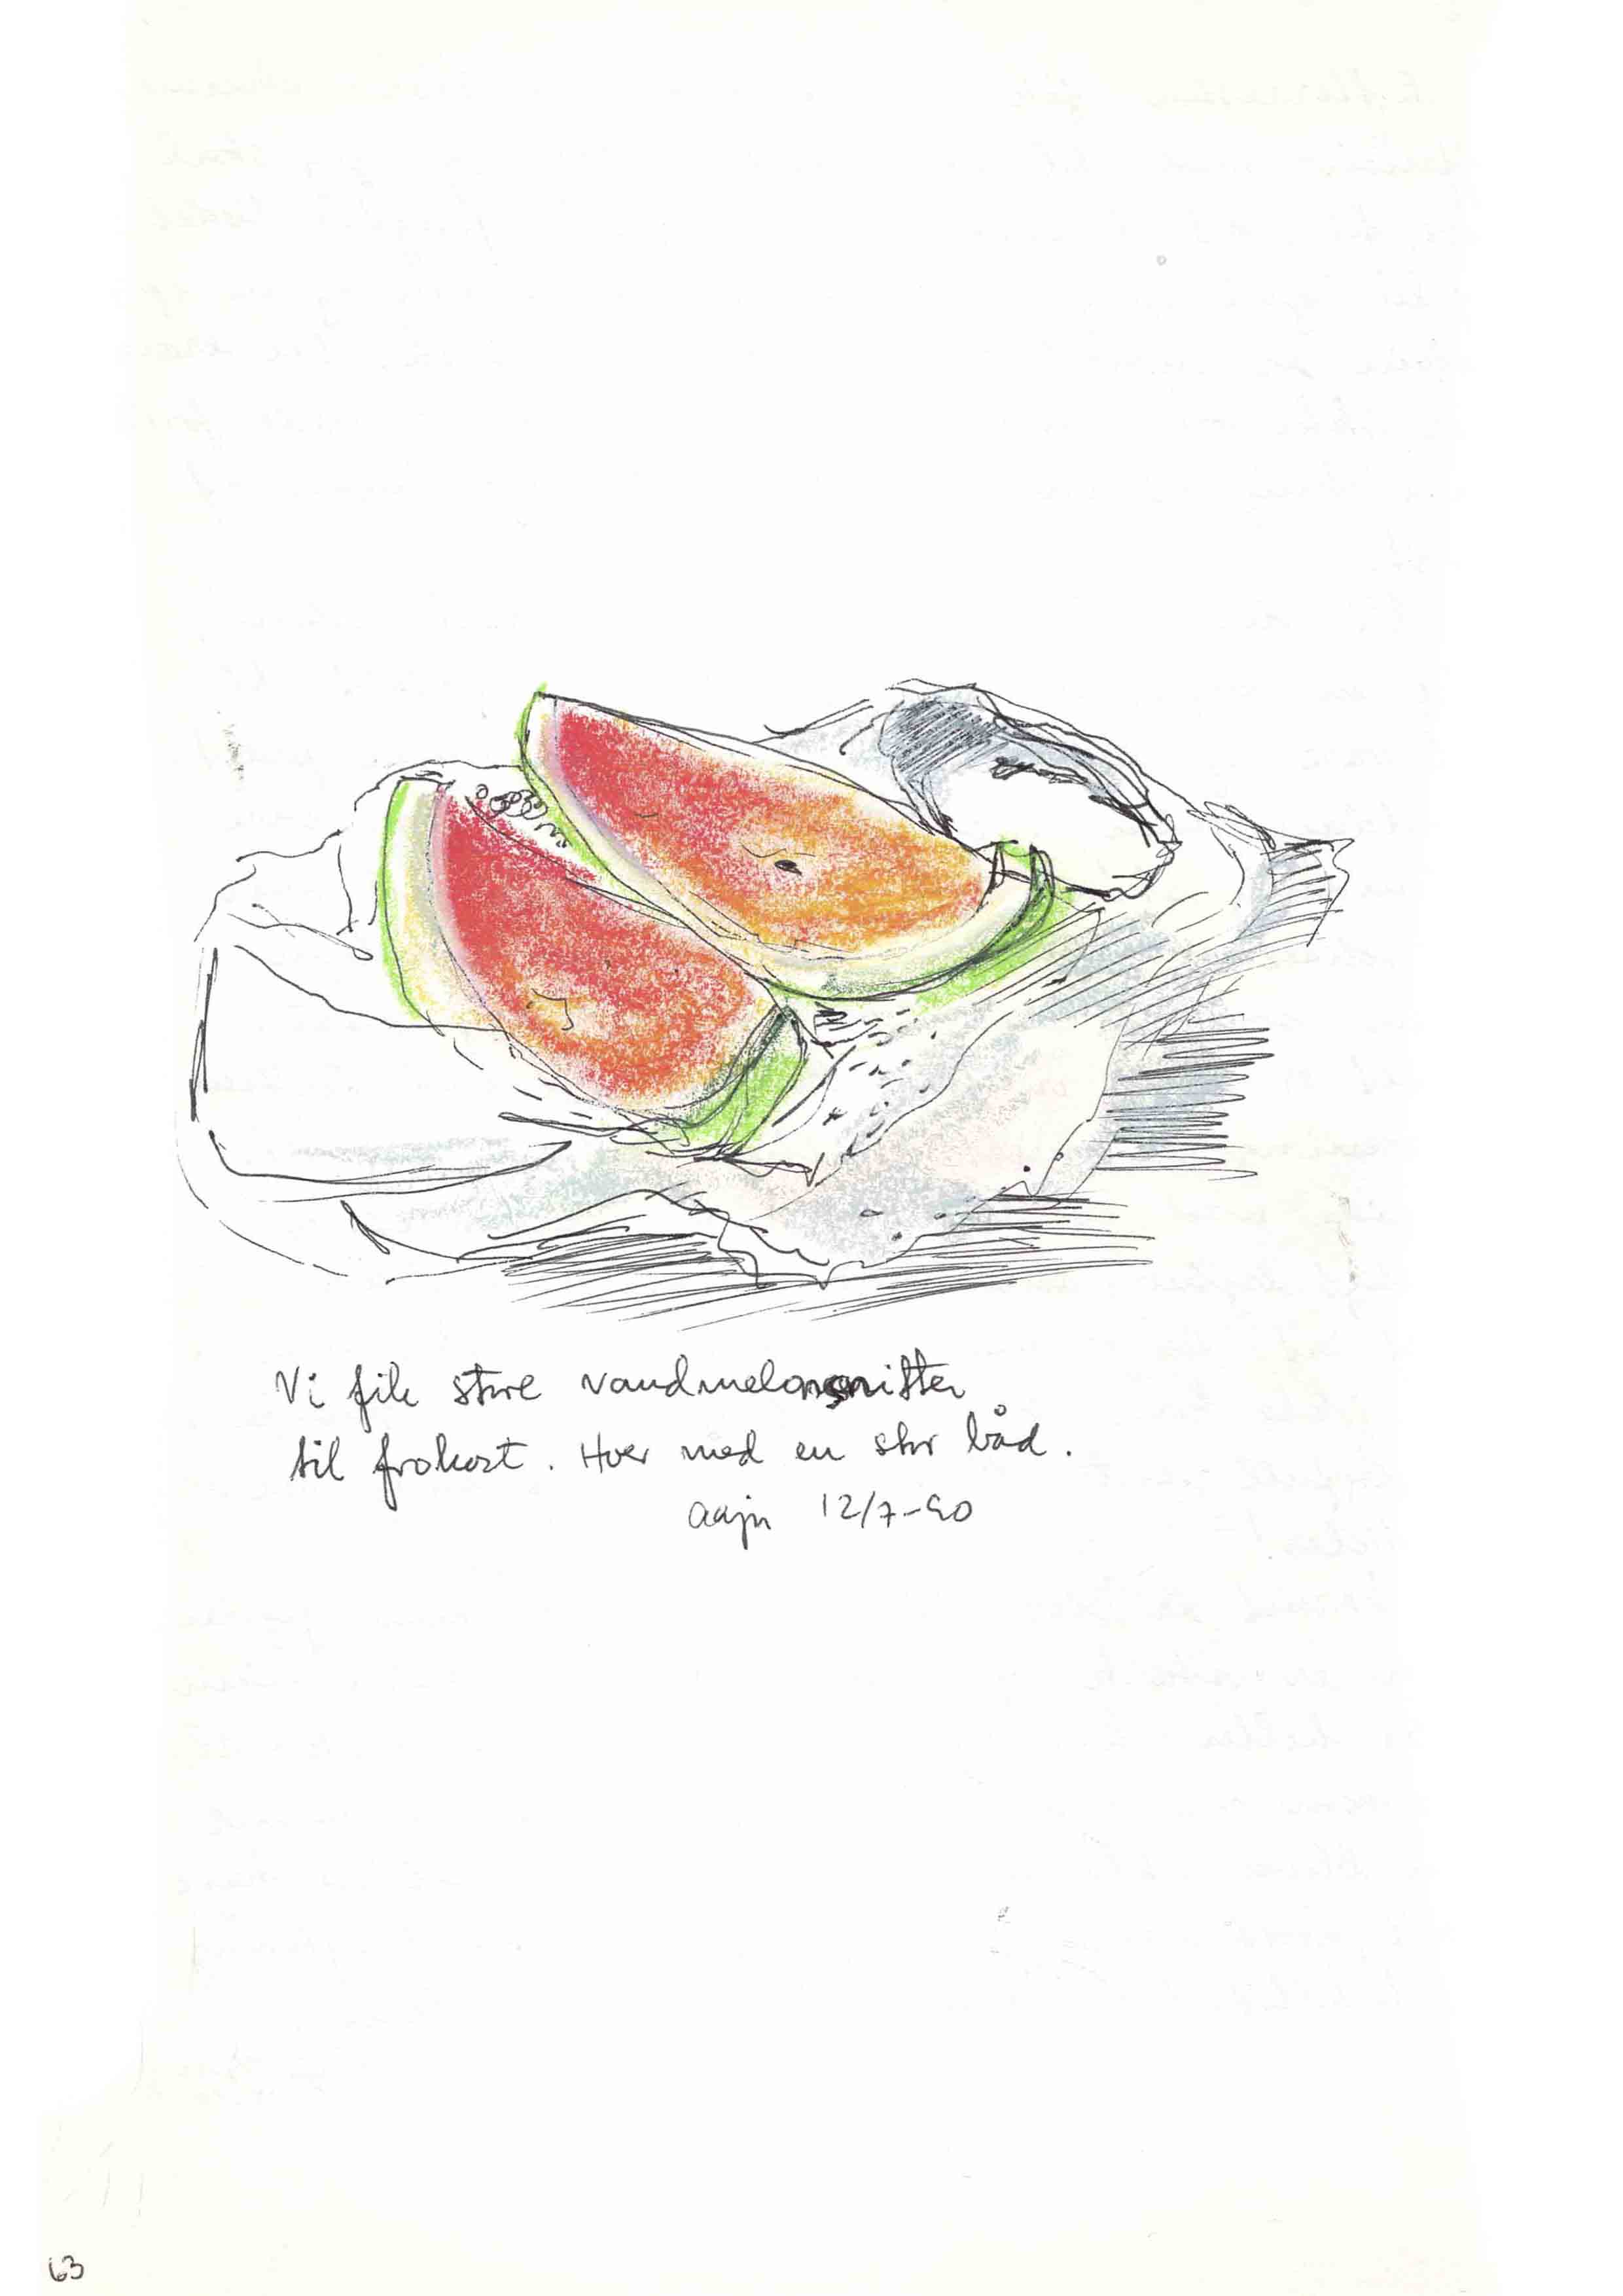 Vi fik store vandmelonsnitter
til frokost. Hver med en stor båd.
aajn 12/7-90
63